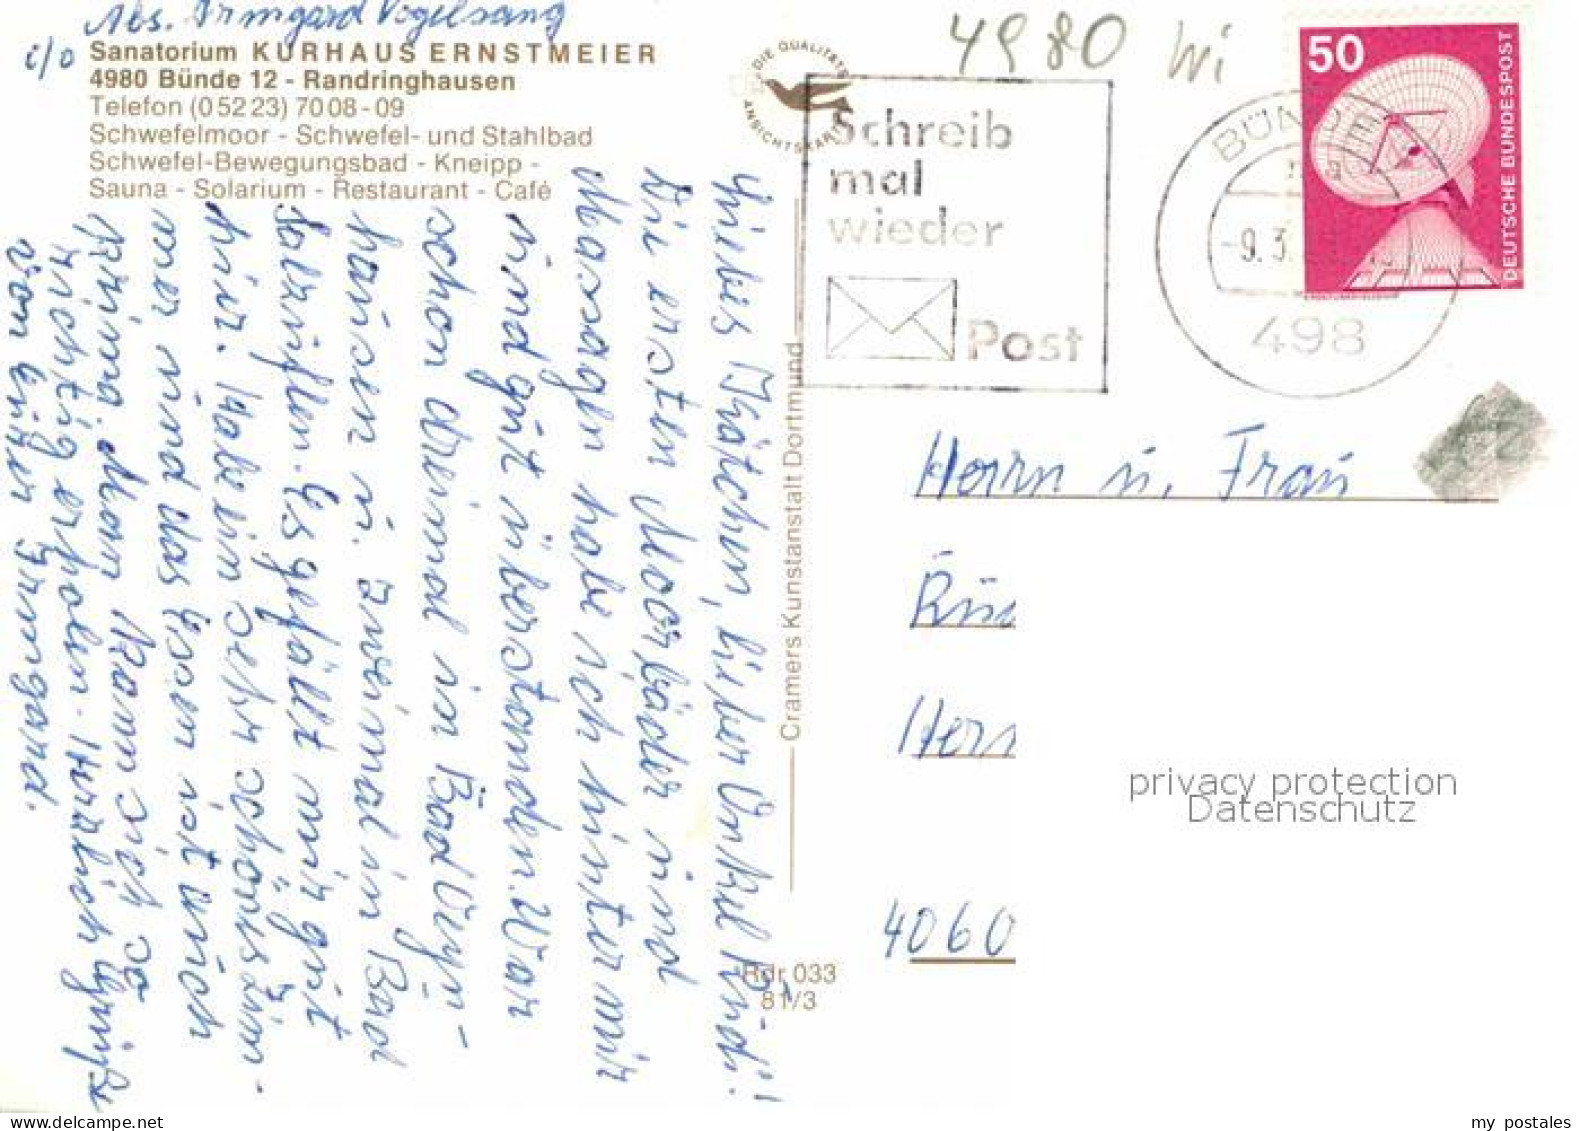 Abs. Irmgard Vogelsang
i/o Sanatorium KURHAUS ERNSTMEIER
4980 Bünde 12 - Randringhausen
Telefon (0 52 23) 70 08 - 09
Schwefelmoor - Schwefel- und Stahlbad
Schwefel-Bewegungsbad - Kneipp -
Sauna - Solarium - Restaurant - Café
Liebes Kätchen, lieber Onkel Rudi!
Die ersten Moorbäder und
Massagen habe ich hinter mir
und gut überstanden. War
schon dreimal in Bad Oeyn-
hausen u. zweimal in Bad
Salzuflen. Es gefällt mir gut
hier. Habe ein sehr schönes Zim-
mer und das Essen ist auch
prima. Man kann sich so
richtig erholen. Herzlich grüßt
von Irmgard.
DIE QUALITÄTS
ANSICHTSKARTE
Cramers Kunstanstalt Dortmund
Rdr 033
81/3
4980 Wi
Schreib
mal
wieder
Post
BÜNDE
-9.3.
498
50
DEUTSCHE BUNDESPOST
Herrn u. Frau
4060
privacy protection
Datenschutz
my postales